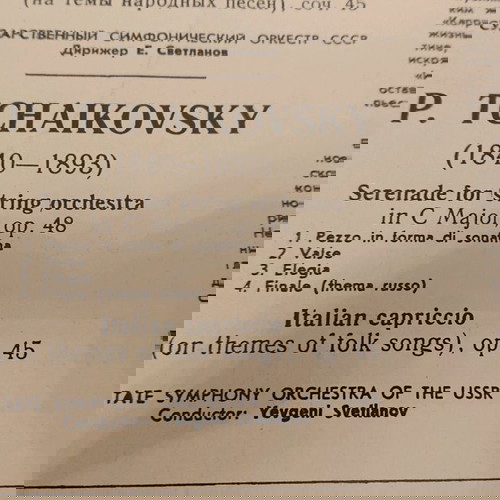 (на темы народных песен) соч. 45
АРСТВЕННЫЙ СИМФОНИЧЕСКИЙ ОРКЕСТР СССР
Дирижер Е. Светланов
P. TCHAIKOVSKY
(1840—1893)
Serenade for string orchestra
in C Major, op. 48
1. Pezzo in forma di sonatina
2. Valse
3. Elegia
4. Finale (thema russo)
Italian capriccio
(on themes of folk songs), op. 45
TATE SYMPHONY ORCHESTRA OF THE USSR
Conductor: Yevgeni Svetlanov